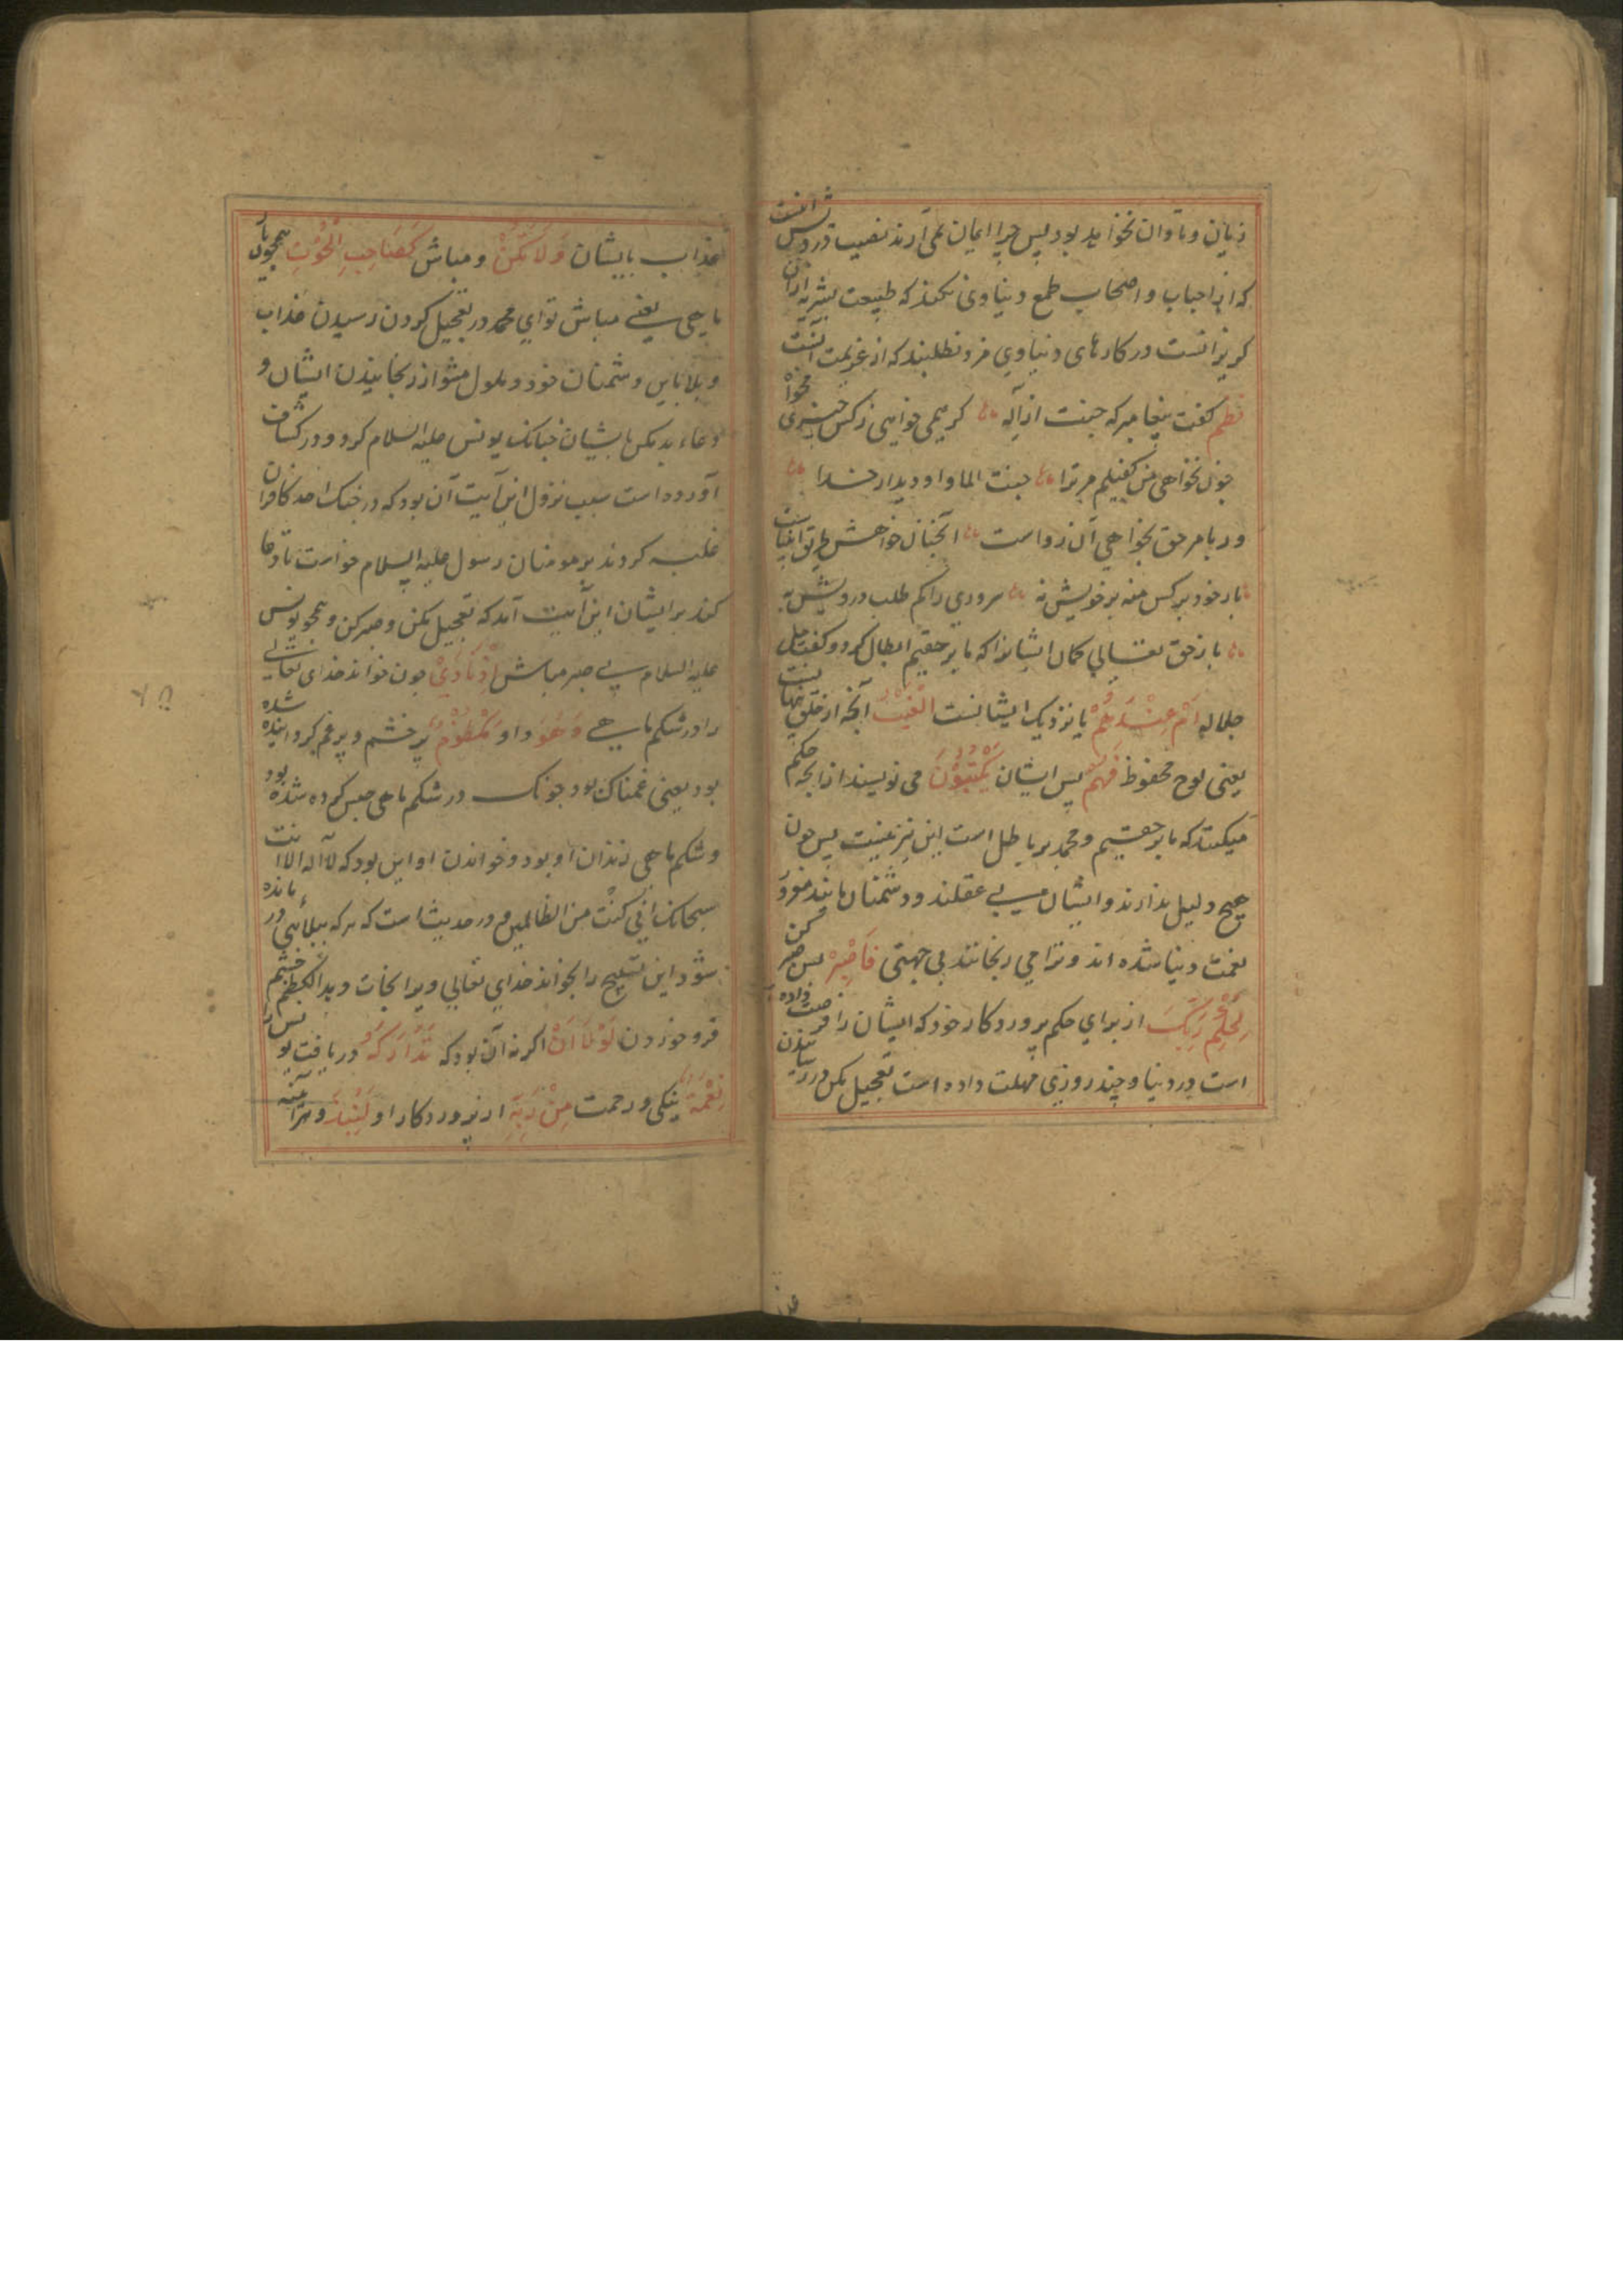 زیان و تاوان نخواهد بود پس چرا ایمان نمی آرند نصیب درویش آنست
که از احباب و اصحاب طمع دنیاوی نکند که طبیعت بشریه ازان
کریزانست در کارهای دنیاوی مزد نطلبند که از عزیمت آنست
نظم کفت پیغامبر که جنت از اله کر همی خواهی ز کس چیزی مخواه
چون نخواهی من کفیلم مر ترا جنت الماوا و دیدار خدا
ور بامر حق بخواهی آن رواست آنچنان خواهش طریق انبیاست
بار خود بر کس منه بر خویش نه سروری را کم طلب درویش به
باز حق تعالی کمان ایشانرا که ما بر حقیم ابطال کرد و کفت جل
جلاله اَمْ عِنْدَهُمُ یا نزدیک ایشانست الْغَيْبُ آنچه از خلق پنهانست
یعنی لوح محفوظ فَهُمْ پس ایشان يَكْتُبُوْنَ می نویسند ازانجه حکم
میکنند که ما بر حقیم و محمد بر باطل است این نیز نیست پس چون
هیچ دلیل ندارند و ایشان بی عقلند و دشمنان مانند مغرور
نعمت دنیا شده اند و ترا می رنجانند بی جهتی فَاصْبِرْ پس صبر کن
لِحُكْمِ رَبِّكَ از برای حکم پروردکار خود که ایشان را فرصت داده
است در دنیا و چند روزی مهلت داده است تعجیل مکن در رسانیدن
عذاب بایشان وَلَا تَكُنْ و مباش كَصَاحِبِ الْحُوْتِ همچو یار
ماهی یعنی مباش تو ای محمد در تعجیل کردن رسیدن عذاب
و بلا باین دشمنان خود و ملول مشو از رنجانیدن ایشان و
دعاء بد مکن بایشان جنانک یونس علیه السلام کرد و در کشاف
آورده است سبب نزول این آیت آن بود که در جنک احد کافران
غلبه کردند بر مومنان رسول علیه السلام خواست تا دعا
کند بر ایشان این آیت آمد که تعجیل مکن و صبر کن و همچو یونس
علیه السلام بی صبر مباش اِذْ نَادٰى چون خواند خدای تعالی
را در شکم ماهی وَهُوَ و او مَكْظُوْمٌ پر خشم و پر غم کردانیده شده
بود یعنی غمناک بود جونک در شکم ماهی حبس کرده شده بود
و شکم ماهی زندان او بود و خواندن او این بود که لا اله الا انت
سبحانک انی کنت من الظالمین و در حدیث است که هر که ببلائی در مانده
شود این تسبیح را بخواند خدای تعالی ویرا نجات دهد الکظم خشم
فرو خوردن لَوْلَا اَنْ اکر نه آن بود که تَدَارَكَهُ دریافت یونس را
نِعْمَةٌ نیکی و رحمت مِنْ رَبِّهٖ از پروردکار او لَنُبِذَ هر آینه